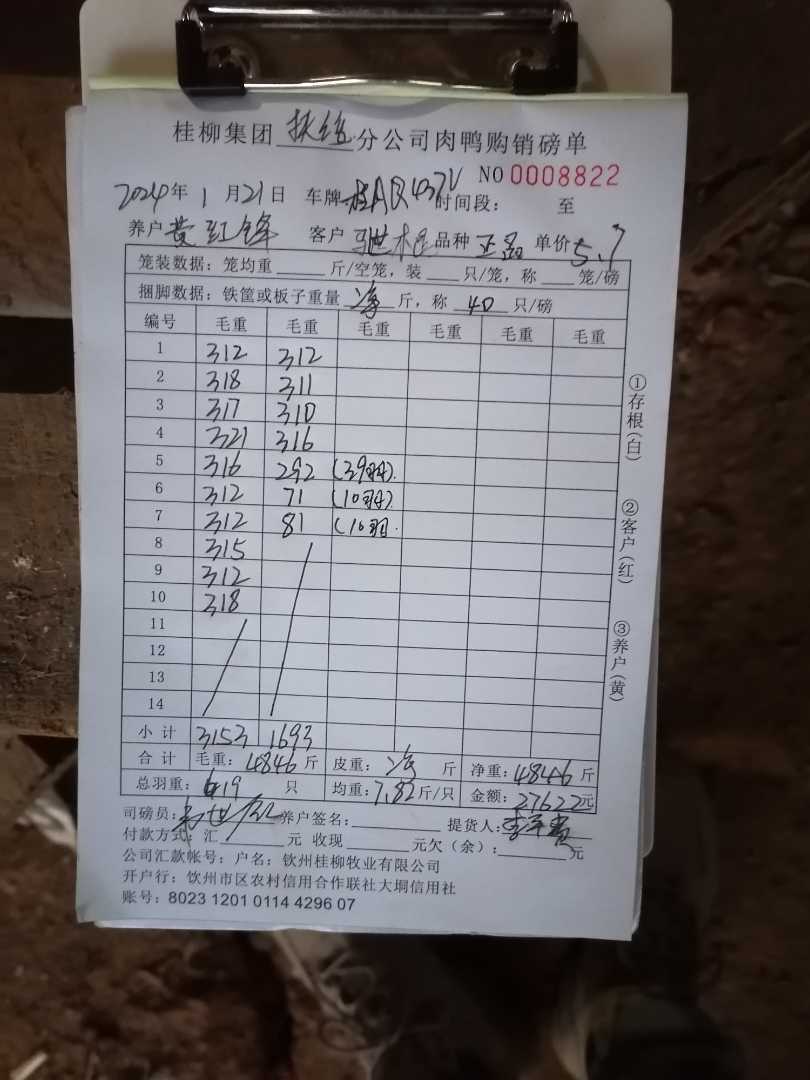 桂柳集团扶绥分公司肉鸭购销磅单
NO 0008822
2024年1月21日 车牌 时间段： 至
养户 黄红锋 客户 品种 正品 单价5.7
笼装数据：笼均重 斤/空笼，装 只/笼，称 笼/磅
捆脚数据：铁筐或板子重量 净 斤，称 40 只/磅
编号 毛重 毛重 毛重 毛重 毛重 毛重
1 312 312
2 318 311
3 317 310
4 321 316
5 316 292 (39羽)
6 312 71 (10羽)
7 312 81 (10羽
8 315
9 312
10 318
11
12
13
14
小计 3153 1693
合计 毛重：4846斤 皮重：净 斤 净重：4846斤
总羽重：619 只 均重：7.82斤/只 金额：27622元
司磅员： 养户签名： 提货人：
付款方式：汇 元 收现 元欠（余）： 元
公司汇款帐号：户名：钦州桂柳牧业有限公司
开户行：钦州市区农村信用合作联社大垌信用社
账号：8023 1201 0114 4296 07
①存根(白)
②客户(红)
③养户(黄)